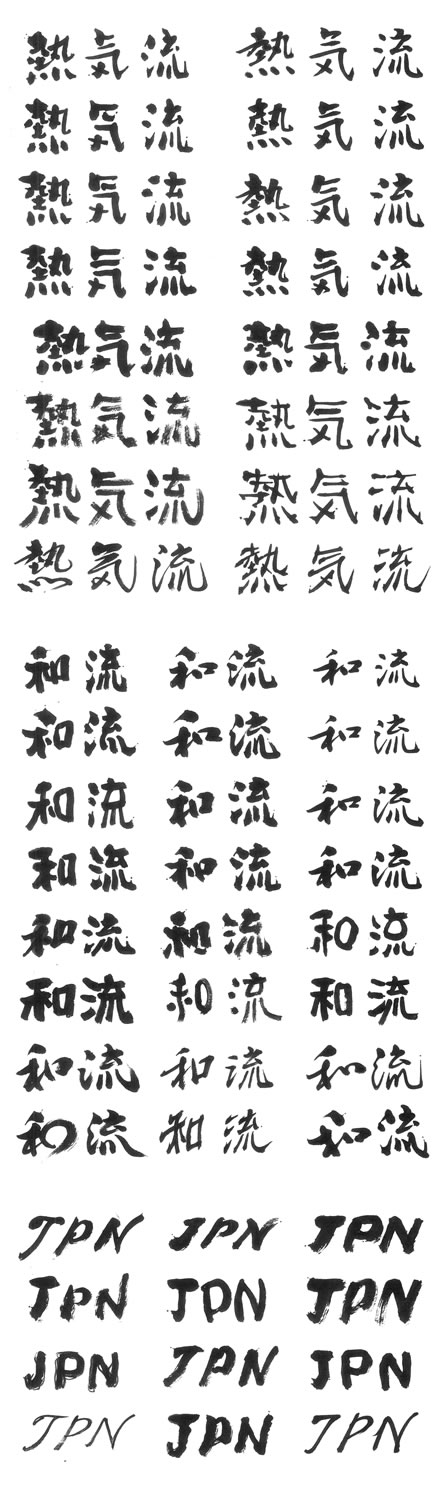 熱気流 熱気流
熱気流 熱気流
熱気流 熱気流
熱気流 熱気流
熱気流 熱気流
熱気流 熱気流
熱気流 熱気流
熱気流 熱気流
和流 和流 和流
和流 和流 和流
和流 和流 和流
和流 和流 和流
和流 和流 和流
和流 和流 和流
和流 和流 和流
和流 和流 和流
JPN JPN JPN
JPN JPN JPN
JPN JPN JPN
JPN JPN JPN